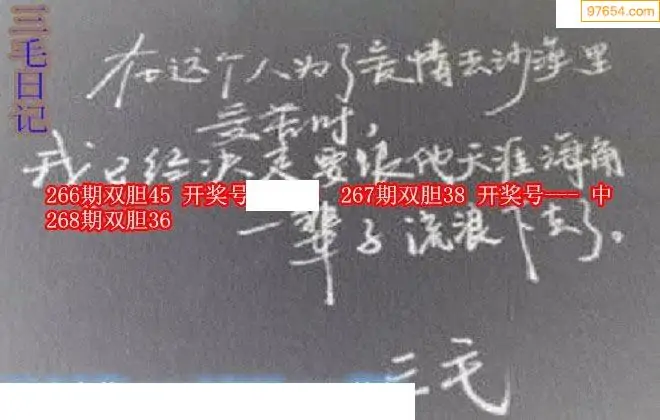 97654.com
三毛日记
在这个人为了爱情去沙漠里
受苦时,
我已经决定要跟他天涯海角
266期双胆45 开奖号 267期双胆38 开奖号--- 中
268期双胆36
一辈子流浪下去了。
三毛